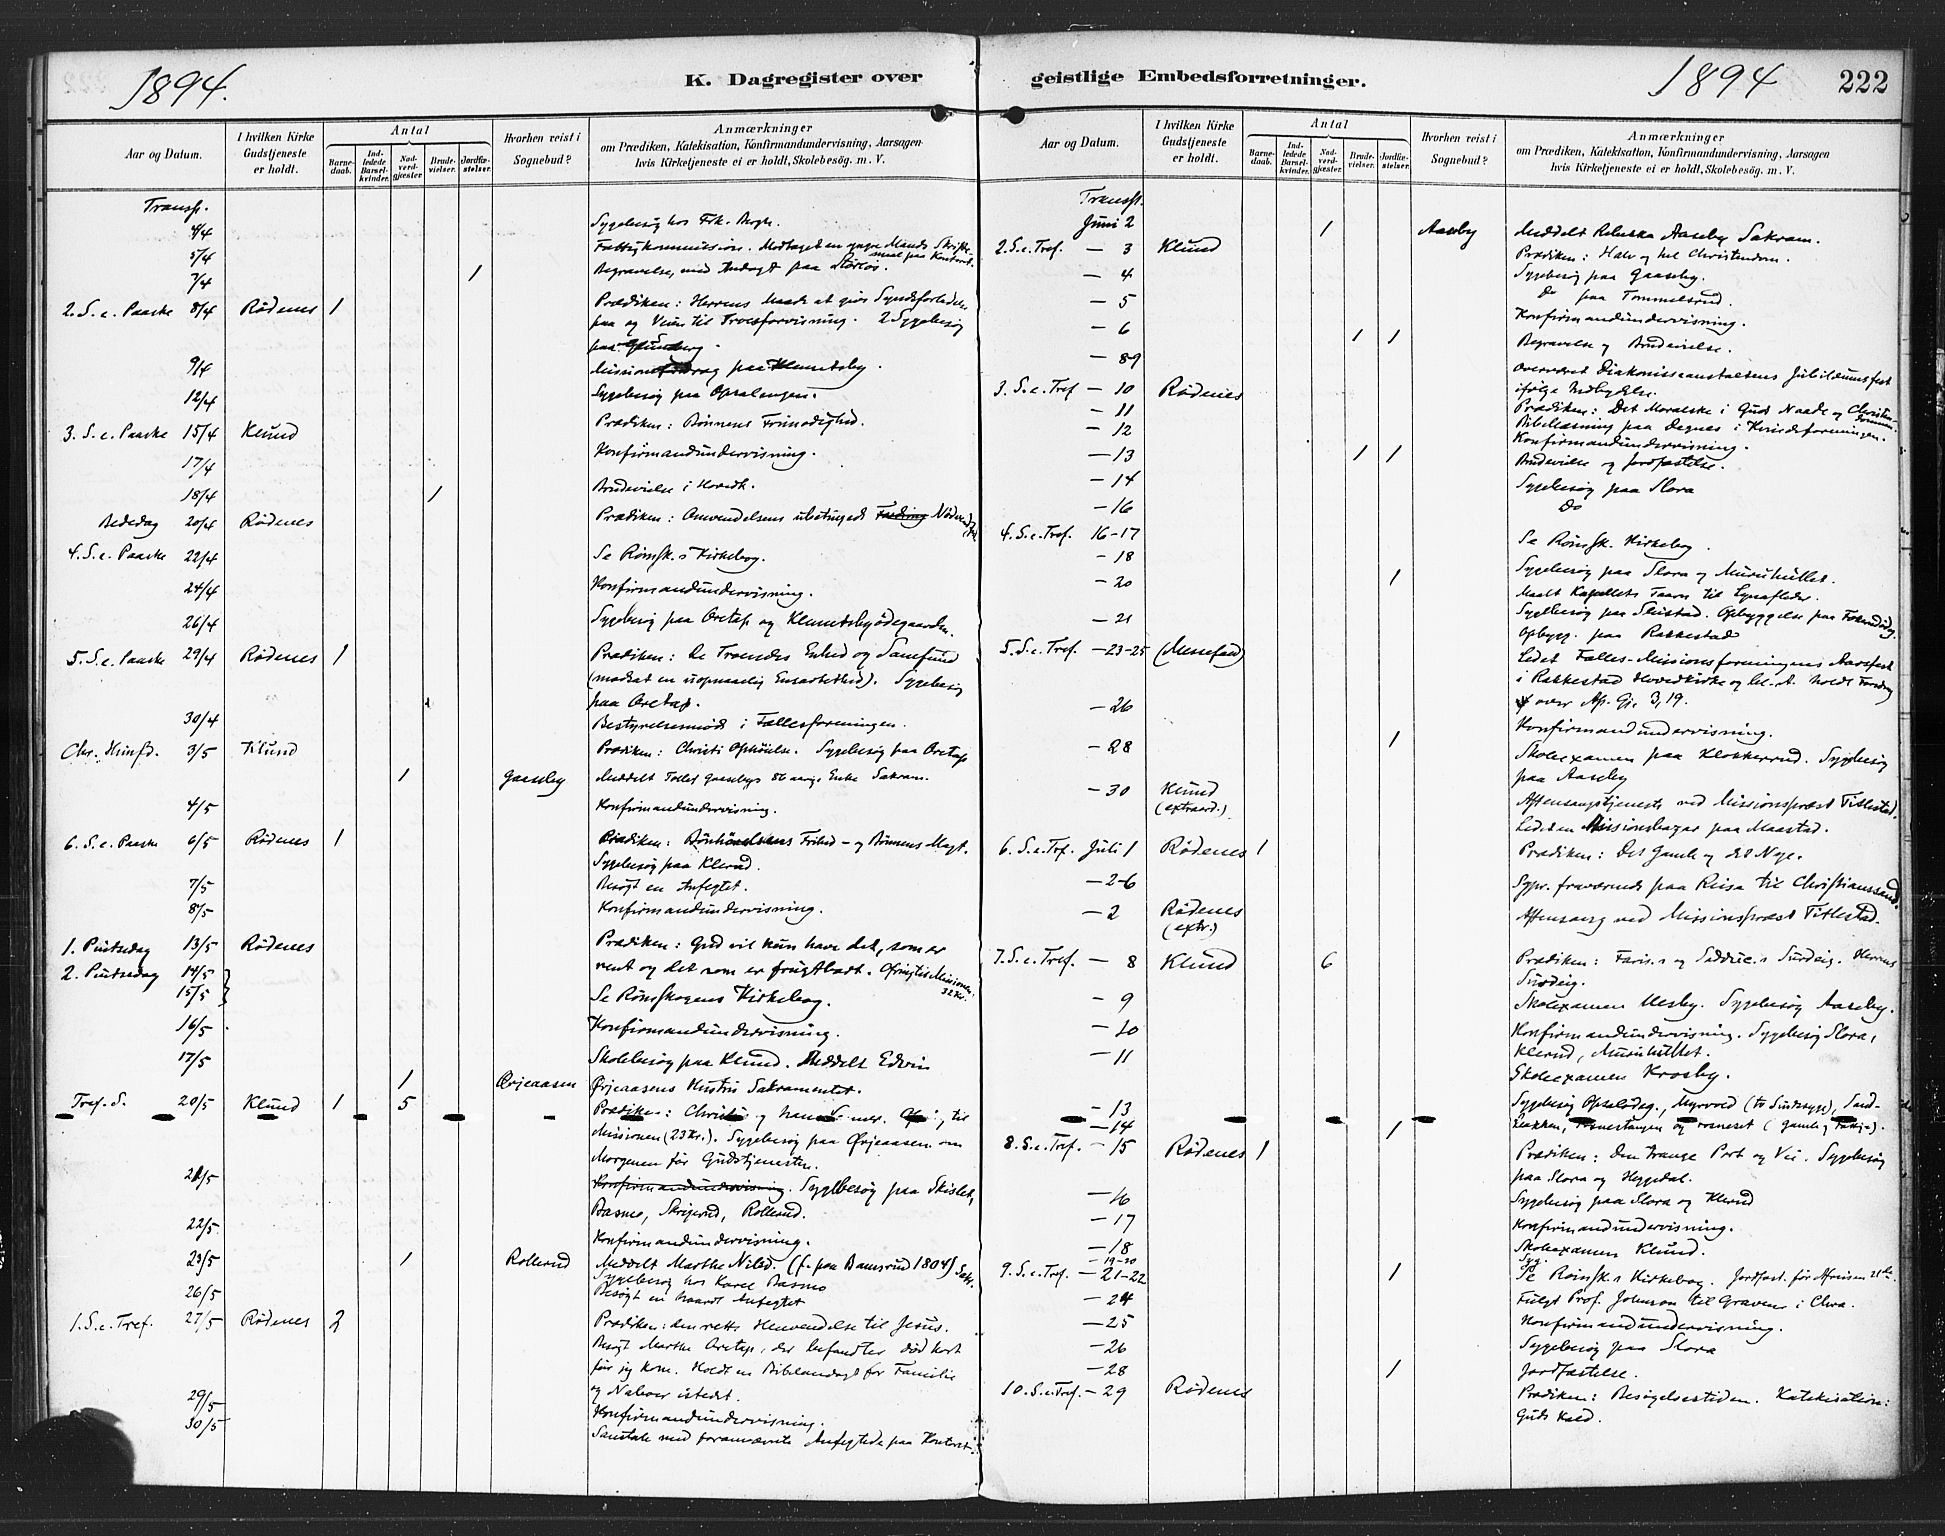 1894.
K. Dagregister over
Aar og Datum.
I hvilken Kirke Gudstjeneste er holdt.
Antal
Barne-daab.
Ind-ledede Barsel-kvinder.
Nad-verd-gjester.
Brude-vielser.
Jordfæ-stelser.
Hvorhen reist i Sognebud?
Anmærkninger
om Prædiken, Katekisation, Konfirmandundervisning, Aarsagen
hvis Kirketjeneste ei er holdt, Skolebesög. m. V.
Transp.
4/4 Sygebesøg hos Frk.
5/4 Fattigkommission. Modtaget en ung Mands Skrifte-
maal paa Kontoret.
7/4 1 Begravelse, med Andagt paa
2. S. e. Paaske 8/4 Rødenes 1 Prædiken: Herrens Maade at give Syndsforladelse
paa og Veien til Troesforvisning. 2 Sygebesøg
paa
9/4 paa Klemetsby.
12/4 Sygebesøg paa
3. S. e. Paaske 15/4 Klund Prædiken: Bønnens Frimodighed.
17/4 Konfirmandundervisning.
18/4 1 Brudevielse i Hovedk.
Bededag 20/4 Rødenes Prædiken: Omvendelsens ubetingede
4. S. e. Paaske 22/4 Se Rømsk.s Kirkebog.
24/4 Konfirmandundervisning.
26/4 Sygebesøg paa Oretap og Klemetsbyødegaarden.
5. S. e. Paaske 29/4 Rødenes 1 Prædiken: De Troendes Enhed og Samfund
(modsat en uopnaaelig Ensartethed). Sygebesøg
paa Oretap.
30/4 Bestyrelsesmøde i Fællesforeningen.
Chr. Himfd. 3/5 Klund Prædiken: Christi Ophøielse. Sygebesøg paa Oretap
1 Gaaseby Meddelt Tolles Gaasebys 86 aarige Enke Sakram.
4/5 Konfirmandundervisning.
6. S. e. Paaske 6/5 Rødenes 1 Prædiken: Bønhørelsens Frihed – og Bønnens Magt.
Sygebesøg paa Klerud.
7/5 Besøgt en Anfegtet.
8/5 Konfirmandundervisning.
1. Pintsedag 13/5 Rødenes Prædiken: Gud vil kun have det, som er
2. Pintsedag 14/5 rent og det som er frugtbart. Ofring til Missionen
32 Kr.
15/5 Se Rømskogens Kirkebog.
16/5 Konfirmandundervisning.
17/5 Skolebesøg paa Klund. Meddelt Edvin
1 Ørjeaasen Ørjeaasens Hustru Sakramentet.
Tref. S. 20/5 Klund 1 5 Prædiken: Christus og til
Missionen (23 Kr.). Sygebesøg paa Ørjeaasen om
Morgenen før Gudstjenesten.
21/5 Konfirmandundervisning. Sygebesøg paa Skislet,
Basmo, Rollerud.
22/5 Konfirmandundervisning.
23/5 1 Rollerud Meddelt Marthe Nilsd. (f. paa 1804) Sakr.
Sygebesøg hos Karel Basmo
26/5 Besøgt en haardt Anfegtet
1. S. e. Tref. 27/5 Rødenes 2 Prædiken: den rette Henvendelse til Jesus.
Besøgt Marthe Oretap, der befandtes død kort
før jeg kom. Holdt en Bibelandagt for Familie
og Naboer istedet.
29/5 Konfirmandundervisning.
30/5 Samtale med forannævnte Anfegtede paa Kontoret.
geistlige Embedsforretninger.
1894
222
Aar og Datum.
I hvilken Kirke Gudstjeneste er holdt.
Antal
Barne-daab.
Ind-ledede Barsel-kvinder.
Nad-verd-gjester.
Brude-vielser.
Jordfæ-stelser.
Hvorhen reist i Sognebud?
Anmærkninger
om Prædiken, Katekisation, Konfirmandundervisning, Aarsagen
hvis Kirketjeneste ei er holdt, Skolebesög. m. V.
Transp.
Juni 2 1 Aaseby Meddelt Rebekka Aaseby Sakram.
2. S. e. Tref. – 3 Klund Prædiken: Halv og hel Christendom.
– 4 Sygebesøg paa Gaaseby.
– 5 Do paa Tommelsrud.
– 6 Konfirmandundervisning.
1 1 Begravelse og Brudevielse.
– 8-9 Overværet Diakonisseanstaltens Jubilæumsfest
ifølge Indbydelse.
3. S. e. Tref – 10 Rødenes Prædiken: Det Moralske i Guds Naade og Christendommen.
– 11 Bibellæsning paa Degnes i Kvindeforeningen.
– 12 Konfirmandundervisning.
– 13 1 1 Brudevielse og Jordfæstelse.
– 14 Sygebesøg paa Slora
– 16 Do
4. S. e. Tref. 16-17 Se Rømsk. Kirkebog.
– 18 Sygebesøg paa Slora og Muruhullet.
– 20 1 Maalt Kapellets Taarn til Lynafleder.
– 21 Sygebesøg paa
Opbygg. paa Rakkestad
5. S. e. Tref. – 23-25 (Messefald) Ledet Fælles-Missionsforeningens Aarsfest
i Rakkestad Hovedkirke og bl. A. holdt Foredrag
over Ap. Gj. 3, 19.
– 26 Konfirmandundervisning.
– 28 1 Skoleexamen paa Klokkerud. Sygebesøg
paa Aaseby
– 30 Klund (extraord.) Aftensangstjeneste ved Missionsprest Titlestad.
Ledet en Missionsbazar paa Maastad.
6. S. e. Tref. Juli 1 Rødenes 1 Prædiken: Det Gamle og det Nye.
– 2-6 Sygr. fraværende paa Reise til Christianssand.
– 2 Rødenes (extr.) Aftensang ved Missionsprest Titlestad.
7. S. e. Tref. – 8 Klund 6 Prædiken: Faris.s og Sadduc.s Surdeig. Herrens
Surdeig.
– 9 Skoleexamen Ulsby. Sygebesøg Aaseby.
– 10 Konfirmandundervisning. Sygebesøg Slora,
Klerud, Muruhullet.
– 11 Skoleexamen Krosby.
– 13 Sygebesøg Opsaldag., Myrvold (to Sindssyge),
– 14 1
8. S. e. Tref. – 15 Rødenes 1 Prædiken: Den trange Port og Vei. Sygebesøg
paa Slora og Heggedal.
– 16 Sygebesøg paa Slora og Klerud
– 17 Konfirmandundervisning.
– 18 Skoleexamen Klund.
– 19-20 Syg.
9. S. e. Tref. – 21-22 1 Se Rømsk.s Kirkebog. Jordfæst. før Afreisen 21de
– 24 Fulgt Prof. Johnson til Graven i Chra.
– 25 Konfirmandundervisning.
– 26 Sygebesøg paa Slora
– 28 1 Jordfæstelse.
10. S. e. Tref. – 29 Rødenes Prædiken: Besøgelsestiden. Katekisation:
Guds Kald.